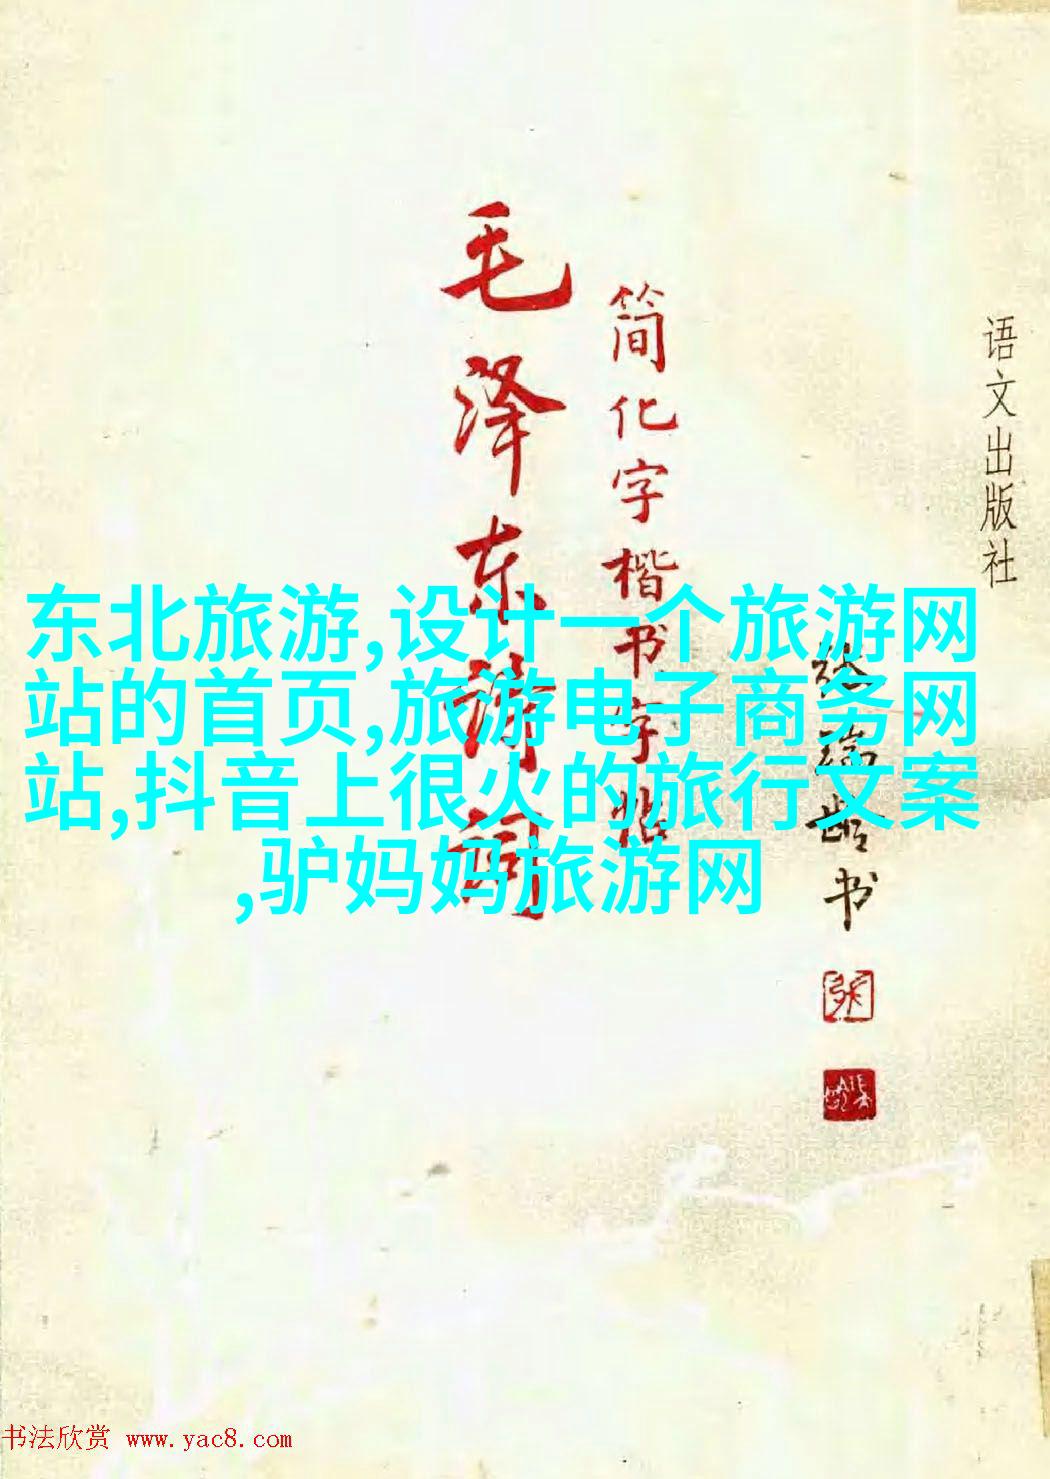 语文出版社
简化字楷书字帖
毛泽东诗词
张瑞龄书
东北旅游,设计一个旅游网
站的首页,旅游电子商务网
站,抖音上很火的旅行文案
,驴妈妈旅游网
书法欣赏 www.yac8.com